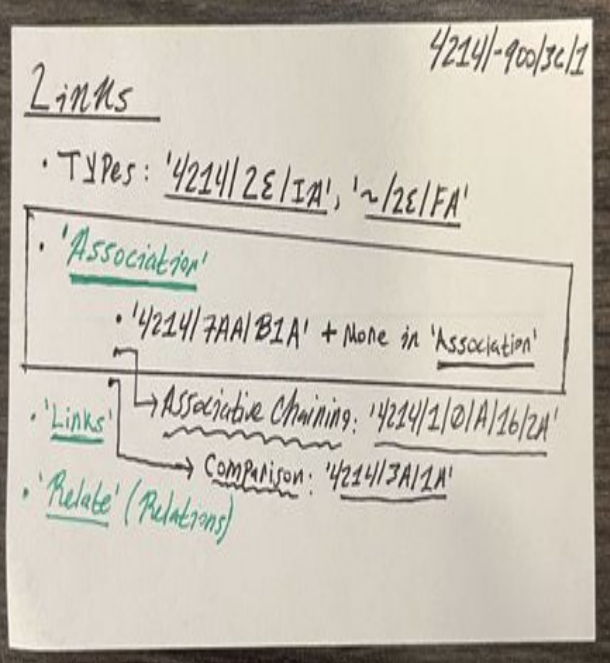 4214/-900/3C/1
Links
• Types: '4214/2E/1A', '~/2E/FA'
• 'Association'
• '4214/7AA/B1A' + More in 'Association'
→ Associative Chaining: '4214/1/0/A/16/2A'
• 'Links'
→ Comparison: '4214/3A/1A'
• 'Relate' (Relations)